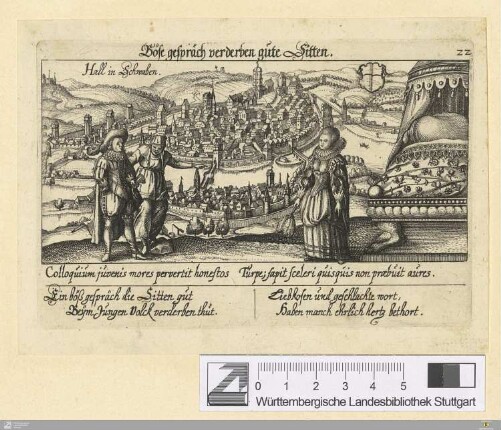 Böse gespräch verderben gute Sitten.
22
Hall in Schwaben.
Colloquium juvenis mores pervertit honestos Turpe; sapit sceleri quisquis non præbuit aures.
Ein böß gespräch die Sitten gut
Beym Jungen Volck verderben thut.
Liebkosen und geschlachte wort,
Haben manch ehrlich hertz bethort.
0 1 2 3 4 5
Württembergische Landesbibliothek Stuttgart